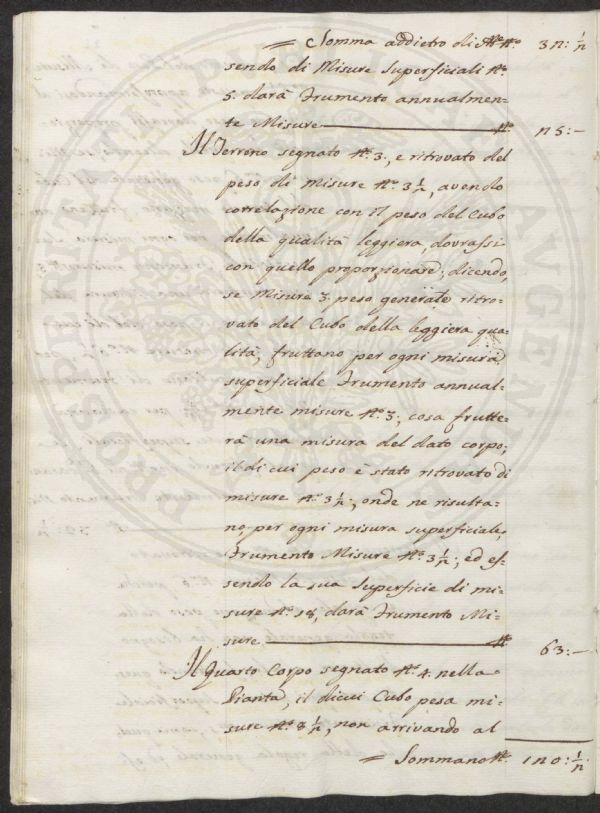 = Somma addietro di N.° N.° 32:½
sendo di Misure Superficiali N.°
5. darà Frumento annualmen=
te Misure — N.° 25:—
Il Terreno segnato N.° 3., e ritrovato del
peso di Misure N.° 3½, avendo
correlazione con il peso del Cubo
della qualità leggiera, dovrassi
con quello proporzionare; dicendo,
se Misure 3. peso generale ritro=
vato del Cubo della leggiera qua=
lità, fruttano per ogni misura
superficiale Frumento annual=
mente misure N.° 3., cosa frutte=
rà una misura del dato corpo;
il di cui peso è stato ritrovato di
misure N.° 3½; onde ne risulta=
no, per ogni misura superficiale,
Frumento Misure N.° 3½; ed es=
sendo la sua Superficie di mi=
sure N.° 18, darà Frumento Mi=
sure — N.° 63:—
Il Quarto Corpo segnato N.° 4. nella
Pianta, il dicui Cubo pesa mi=
sure N.° 8½, non arrivando al
= Sommano N.° 120:½
PROSPERITATI
AVGEN